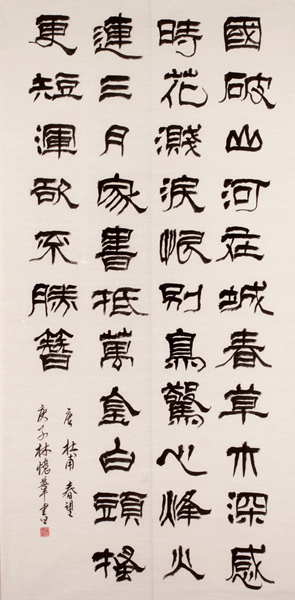 國破山河在城春草木深感
時花濺淚恨別鳥驚心烽火
連三月家書抵萬金白頭搔
更短渾欲不勝簪
唐 杜甫 春望
庚子林憶書